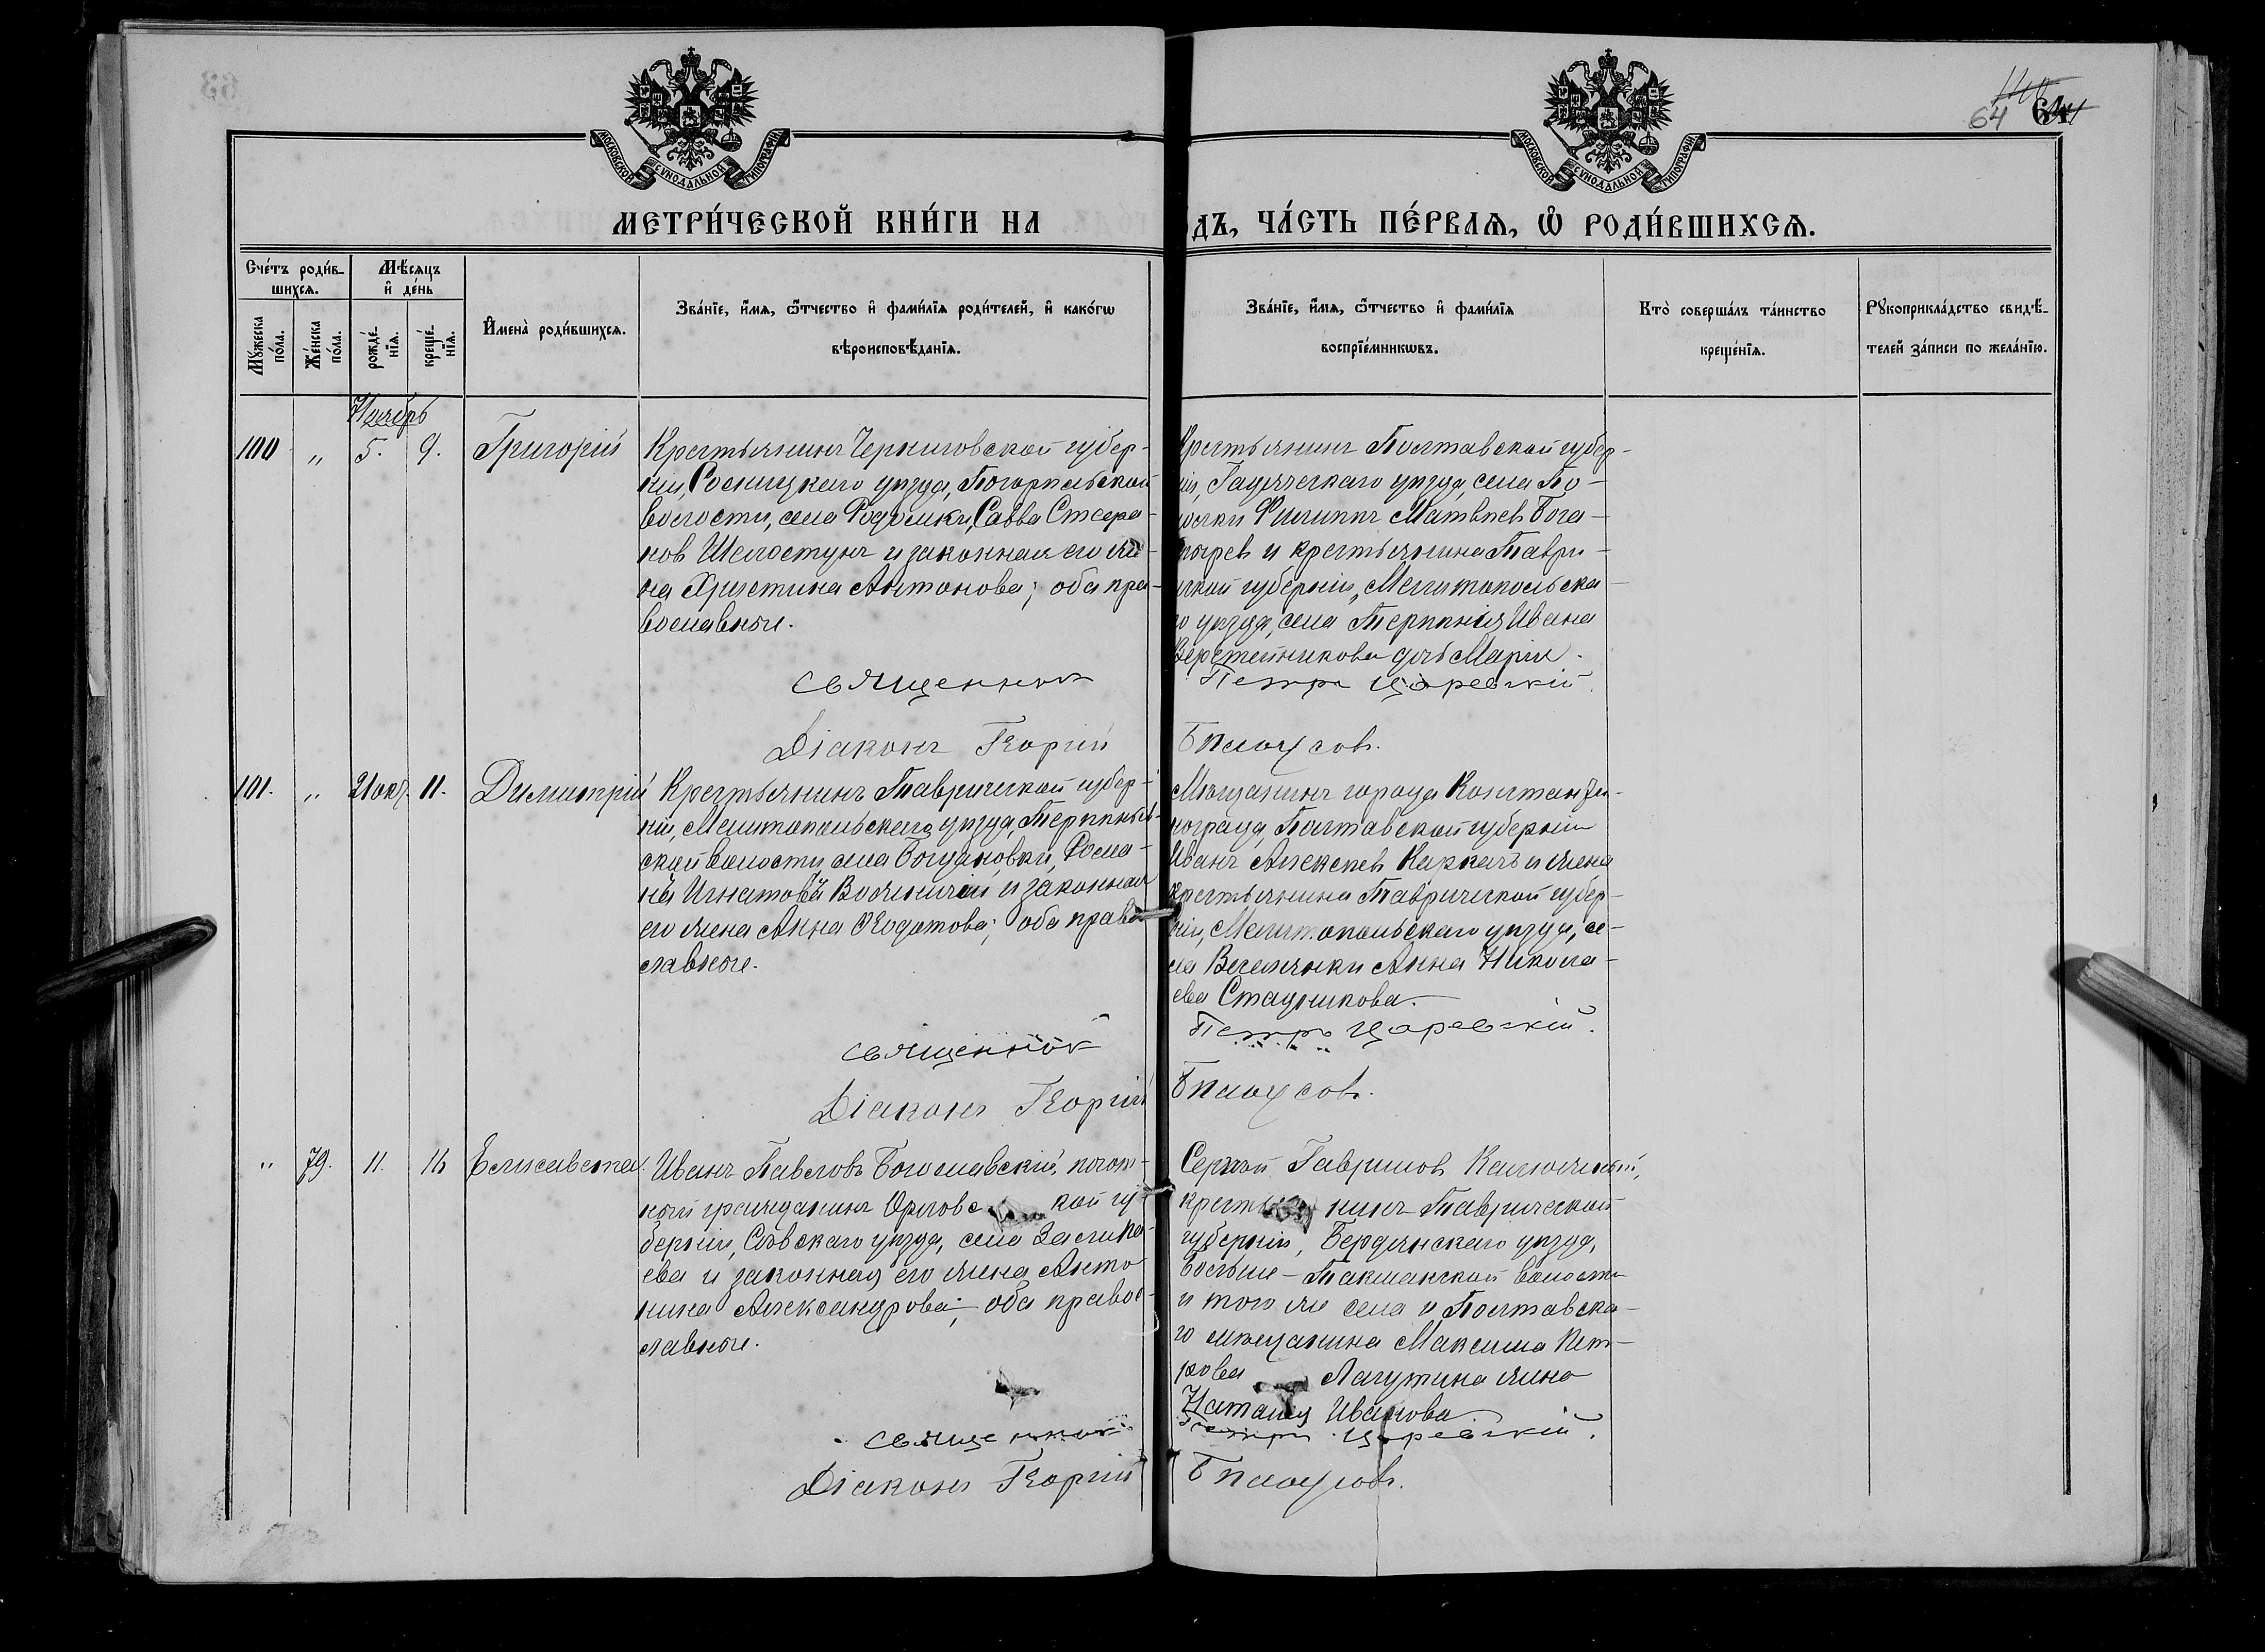 64
МОСКОВСКОЙ СѴНОДАЛЬНОЙ ТИПОГРАФІИ
МОСКОВСКОЙ СѴНОДАЛЬНОЙ ТИПОГРАФІИ
МЕТРИ́ЧЕСКОЙ КНИ́ГИ НА
ДЪ, ЧА́СТЬ ПЕ́РВАѦ, Ѡ҆ РОДИ́ВШИХСѦ.
Сче́тъ роди́в-
шихсѧ.
Мѣ́сѧцъ
и҆ де́нь
Мꙋ́жеска
по́ла.
Же́нска
по́ла.
рожде́-
нїѧ.
креще́-
нїѧ.
И҆мена̀ роди́вшихсѧ.
Зва́нїе, и҆́мѧ, ѻ҆́тчество и҆ фами́лїѧ роди́телей, и҆ како́гѡ
вѣроисповѣ́данїѧ.
Зва́нїе, и҆́мѧ, ѻ҆́тчество и҆ фами́лїѧ
воспрїе́мникѡвъ.
Кто̀ соверша́лъ та́инство
креще́нїѧ.
Рꙋкоприкла́дство свидѣ́-
телей за́писи по жела́нїю.
Ноябрь
100 „ 5. 9. Григорій
Крестьянинъ Черниговской губер-
ніи, Сосницкаго уѣзда, Погорѣльской
волости, села Савва
Шелостунъ и законная его же-
на Христина Антонова; оба пра-
вославные.
Крестьянинъ Полтавской губер-
ніи, Гадяческаго уѣзда, села
Филиппъ Матвѣевъ Бога-
тыревъ и крестьянина Таври-
ческой губерніи, Мелитопольска-
го уѣзда, села Терпѣнія Ивана
Веретенникова дочь Марія.
Священникъ Петръ Царевскій.
Діаконъ Георгій Бѣлоусовъ.
101. „ 21 окт. 11. Димитрій
Крестьянинъ Таврической губер-
ніи, Мелитопольскаго уѣзда, Терпѣньев-
ской волости, села Богдановки, Рома-
нъ Игнатовъ и законная
его жена Анна Ѳеодотова; оба право-
славные.
Мѣщанинъ города Константи-
нограда, Полтавской губерніи
Иванъ Алексѣевъ Каркачъ и жена
крестьянина Таврической губер-
ніи, Мелитопольскаго уѣзда, се-
ла Веселянки Анна Никола-
ева Стадникова.
Священникъ Петръ Царевскій.
Діаконъ Георгій Бѣлоусовъ.
„ 79. 11. 16 Елисавета
Иванъ Павловъ Богославскій, почет-
ный гражданинъ Орловской гу-
берніи, Сѣвскаго уѣзда, села
и законная его жена Анто-
нина Александрова; оба правос-
лавные.
Сергѣй Гавриловъ
крестьянинъ Таврической
губерніи, Бердянскаго уѣзда,
Больше-Токмакской волости
и того же села и Полтавска-
го мѣщанина Максима Пет-
рова Лагутина жена
Наталія Иванова.
Священникъ Петръ Царевскій.
Діаконъ Георгій Бѣлоусовъ.